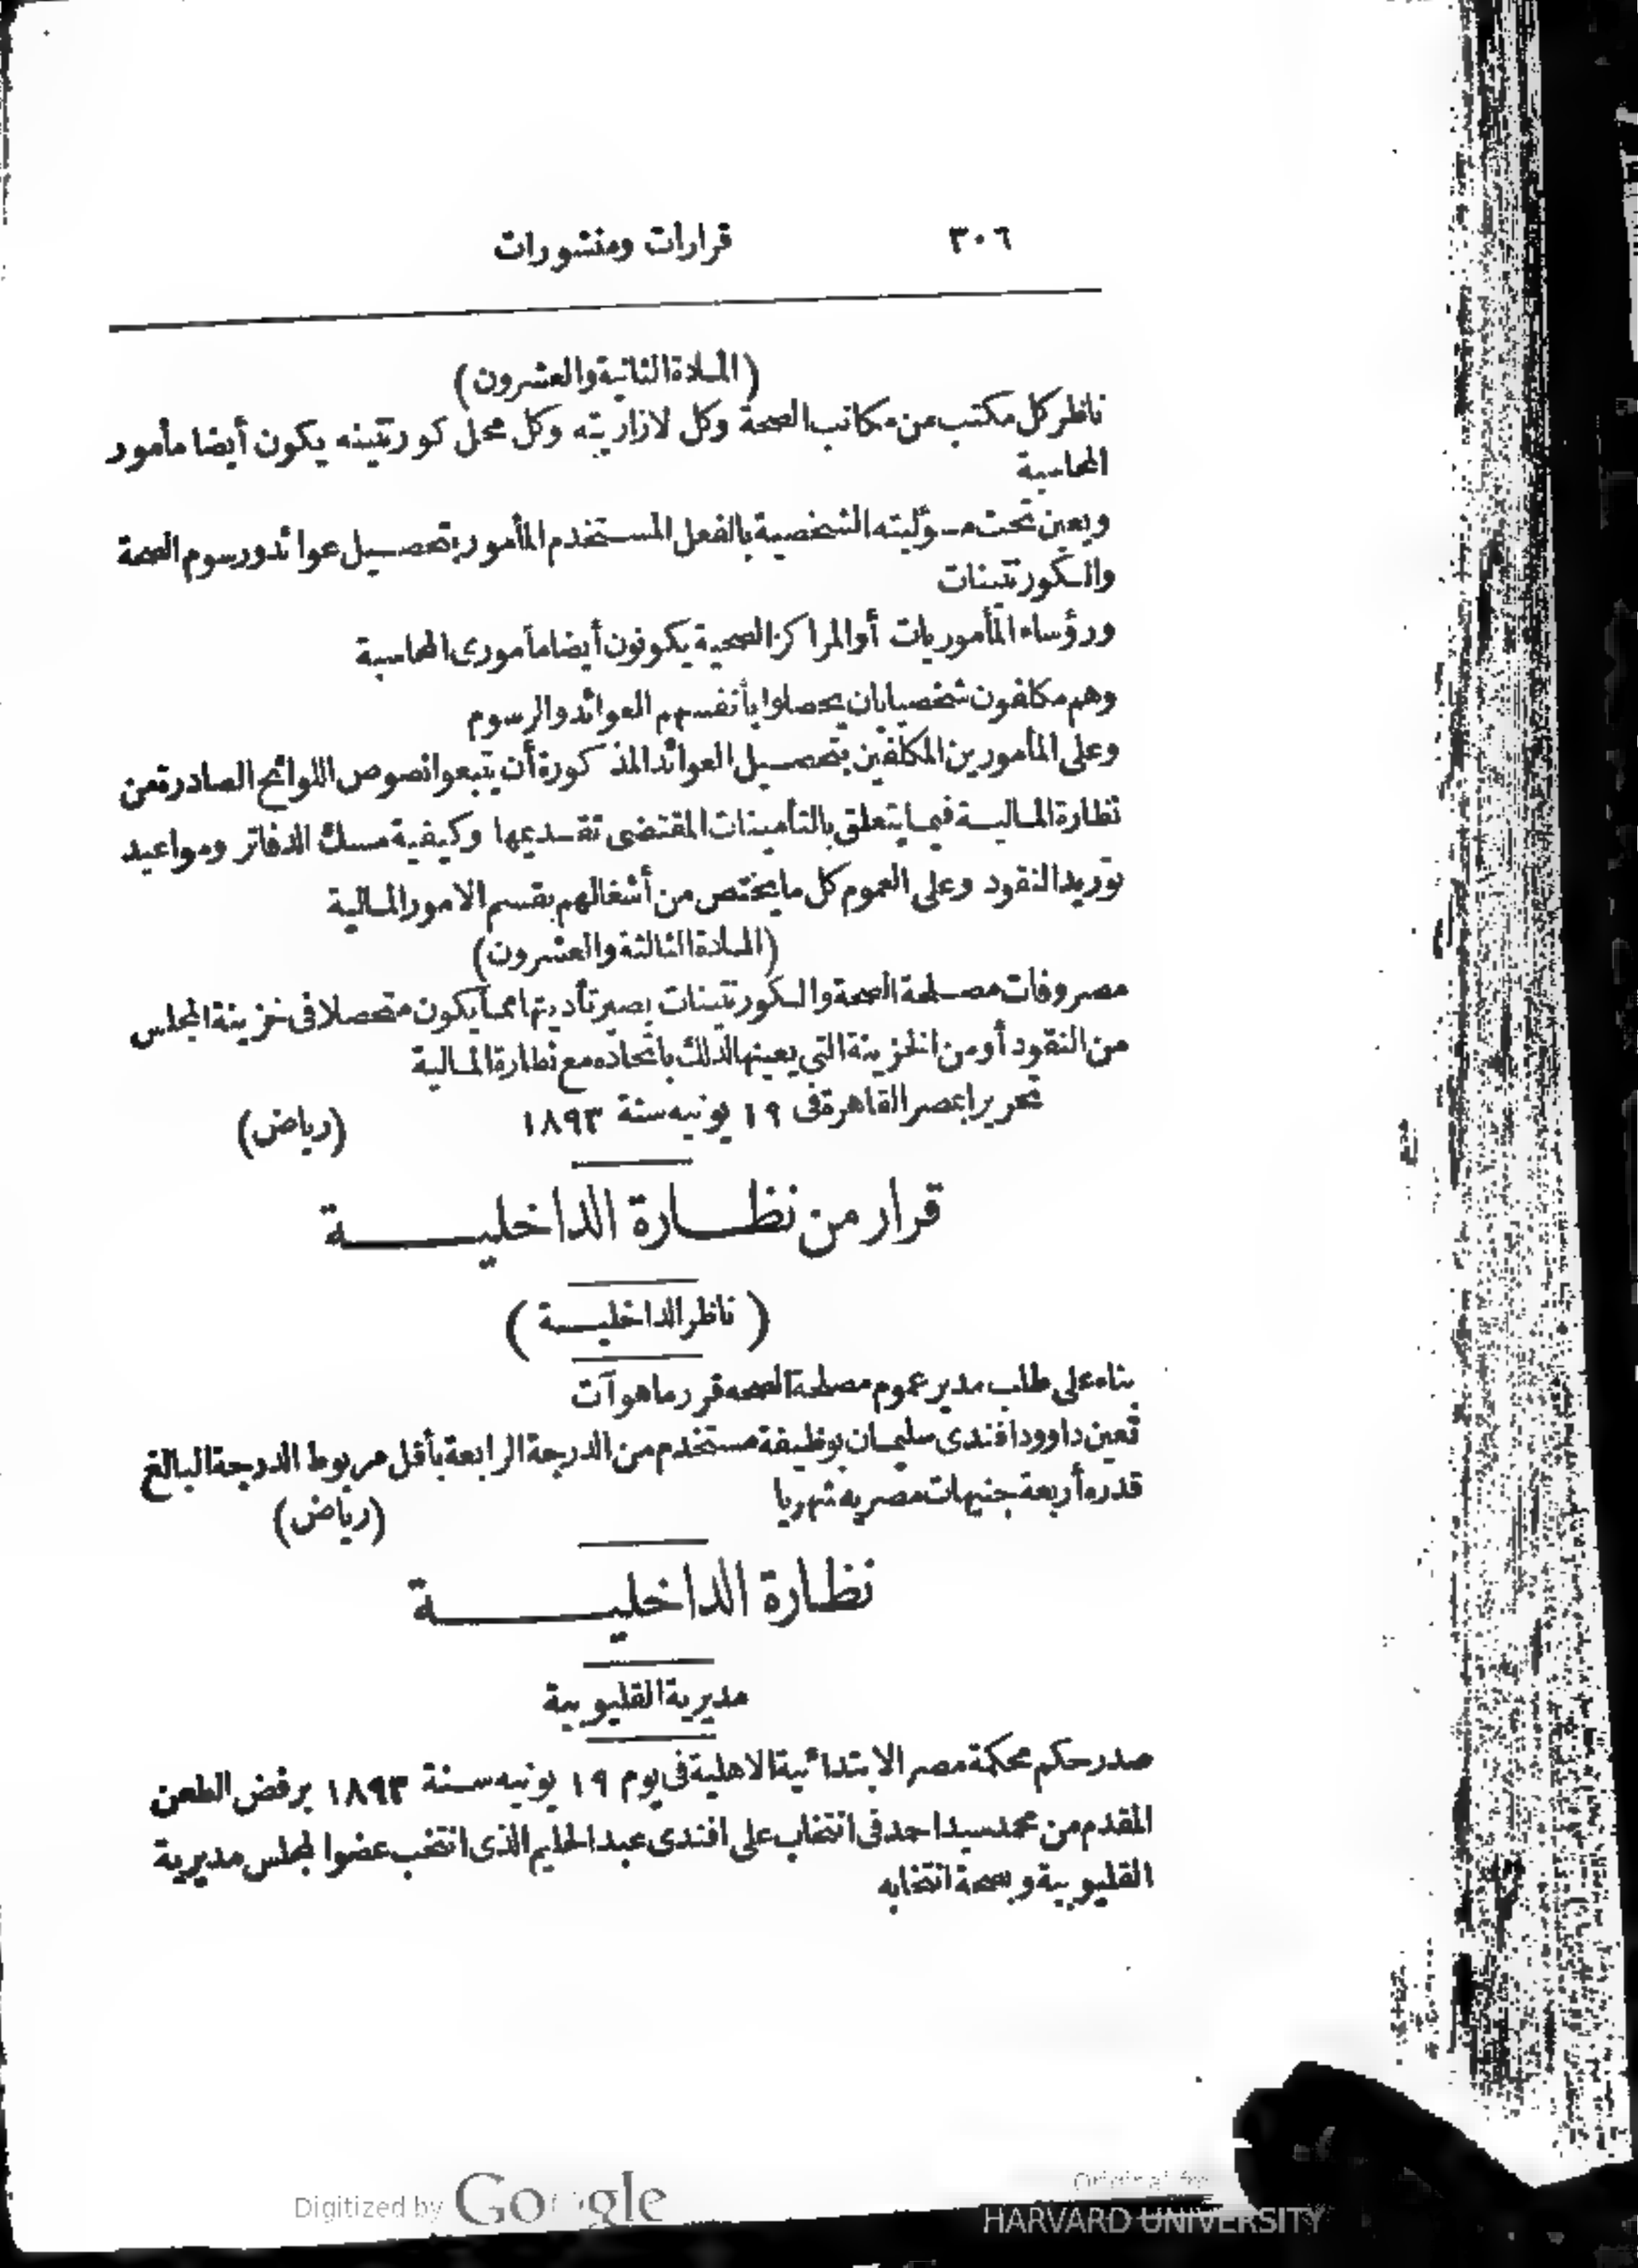 ٣٠٦ قرارات ومنشورات
(المادة الثانية والعشرون)
ناظر كل مكتب من مكاتب الصحة وكل لازاريته وكل محل كورنتينه يكون أيضا مأمور
المحاسبة
ويعين تحت مسؤليته الشخصية بالفعل المستخدم المأمور بتحصيل عوائد ورسوم الصحة
والكورنتينات
ورؤساء المأموريات أو المراكز الصحية يكونون أيضا مأمورى المحاسبة
وهم مكلفون شخصيا بان يحصلوا بأنفسهم العوائد والرسوم
وعلى المأمورين المكلفين بتحصيل العوائد المذكورة أن يتبعوا نصوص اللوائح الصادرة من
نظارة المالية فيما يتعلق بالتأمينات المقتضى تقديمها وكيفية مسك الدفاتر ومواعيد
توريد النقود وعلى العموم كل ما يختص من أشغالهم بقسم الامور المالية
(المادة الثالثة والعشرون)
مصروفات مصلحة الصحة والكورنتينات يصير تأديتها مما يكون متحصلا فى خزينة المجلس
من النقود أو من الخزينة التى يعينها لذلك باتحاده مع نظارة المالية
تحريرا بمصر القاهرة فى ١٩ يونيه سنة ١٨٩٣ (رياض)
قرار من نظارة الداخلية
(ناظر الداخلية)
بناء على طلب مدير عموم مصلحة الصحه قرر ما هو آت
تعين داوود افندى سليمان بوظيفة مستخدم من الدرجة الرابعة بأقل مربوط الدرجة البالغ
قدره أربعة جنيهات مصريه شهريا (رياض)
نظارة الداخلية
مديرية القليوبية
صدر حكم محكمة مصر الابتدائية الاهلية فى يوم ١٩ يونيه سنة ١٨٩٣ برفض الطعن
المقدم من محمد سيد احمد فى انتخاب على افندى عبد الحليم الذى انتخب عضوا لمجلس مديرية
القليوبية وبصحة انتخابه
Digitized by Google
Original from
HARVARD UNIVERSITY